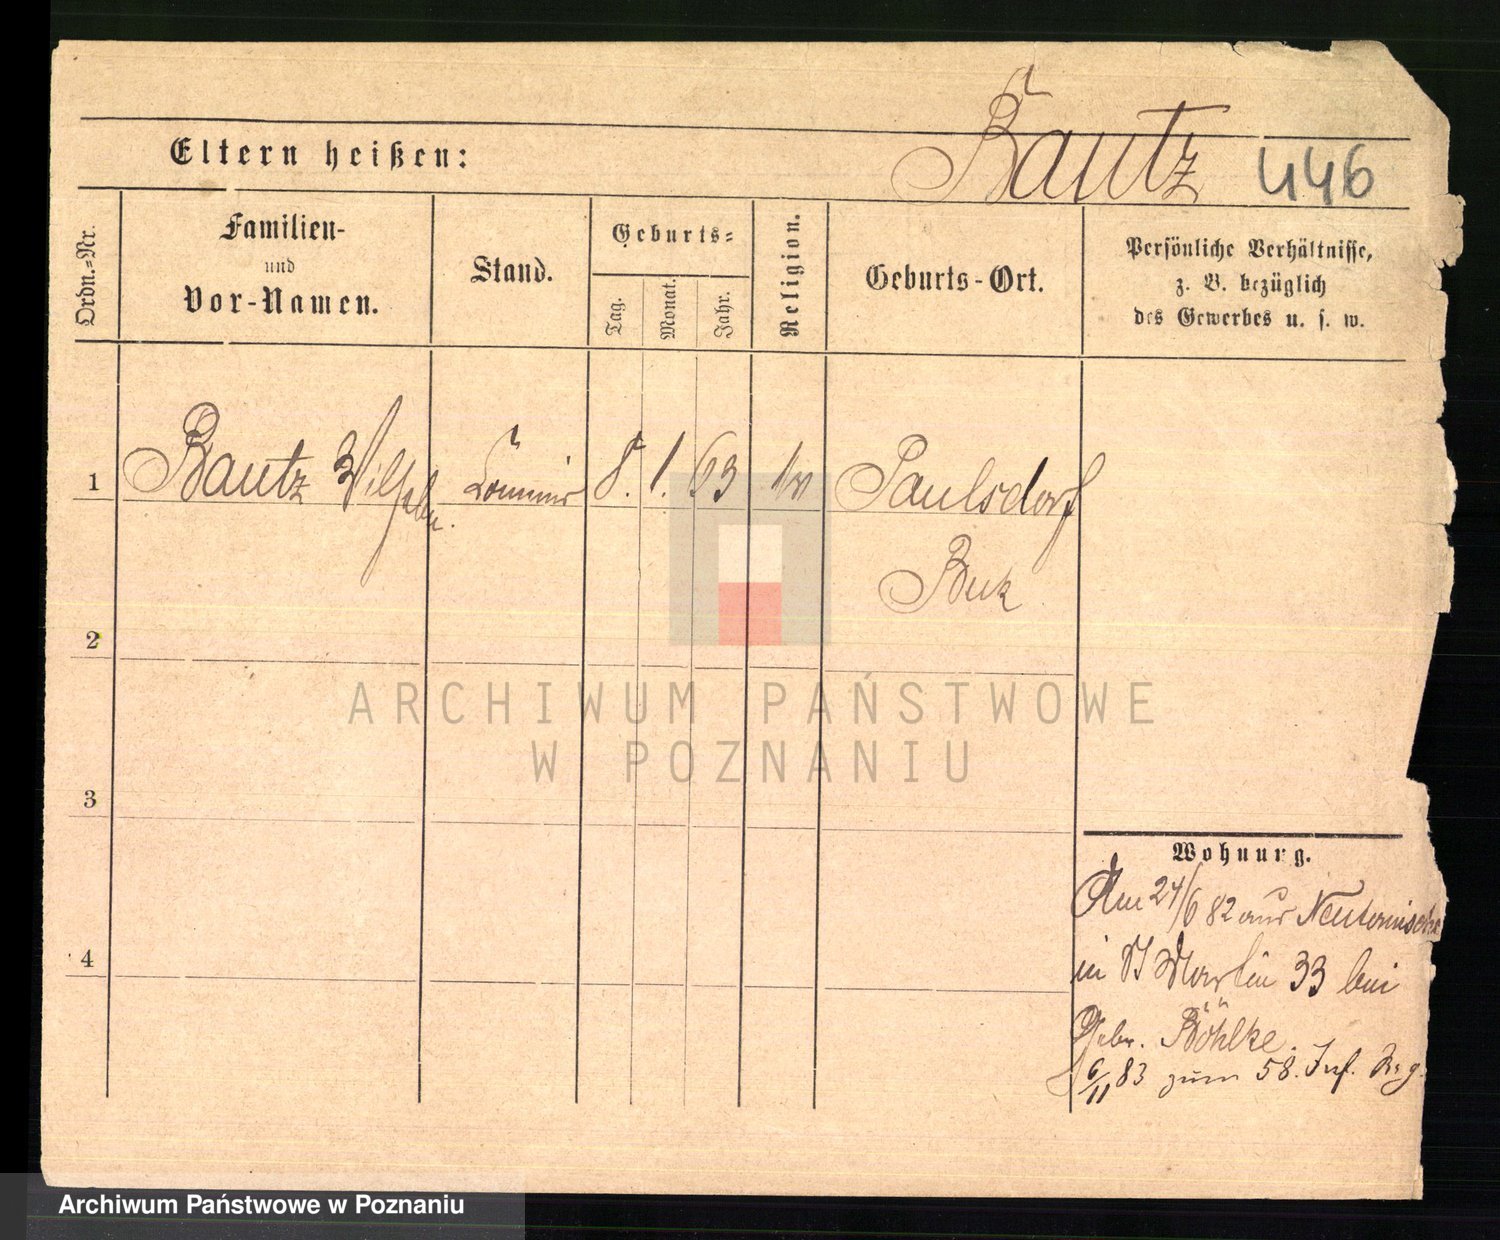 Bautz 446
Eltern heißen:
Ordn.-Nr.
Familien-
und
Vor-Namen.
Stand.
Geburts-
Tag.
Monat.
Jahr.
Religion.
Geburts-Ort.
Persönliche Verhältnisse,
z. B. bezüglich
des Gewerbes u. s. w.
1 Bautz Wilhelm. Commis 8. 1. 63 ev Paulsdorf
Buk
2
3
4
Wohnung.
Am 24/6 82 aus Neutomischel
in St Martin 33 bei
Gebr. Böhlke.
6/11 83 zum 58. Inf. Reg.
ARCHIWUM PAŃSTWOWE
W POZNANIU
Archiwum Państwowe w Poznaniu